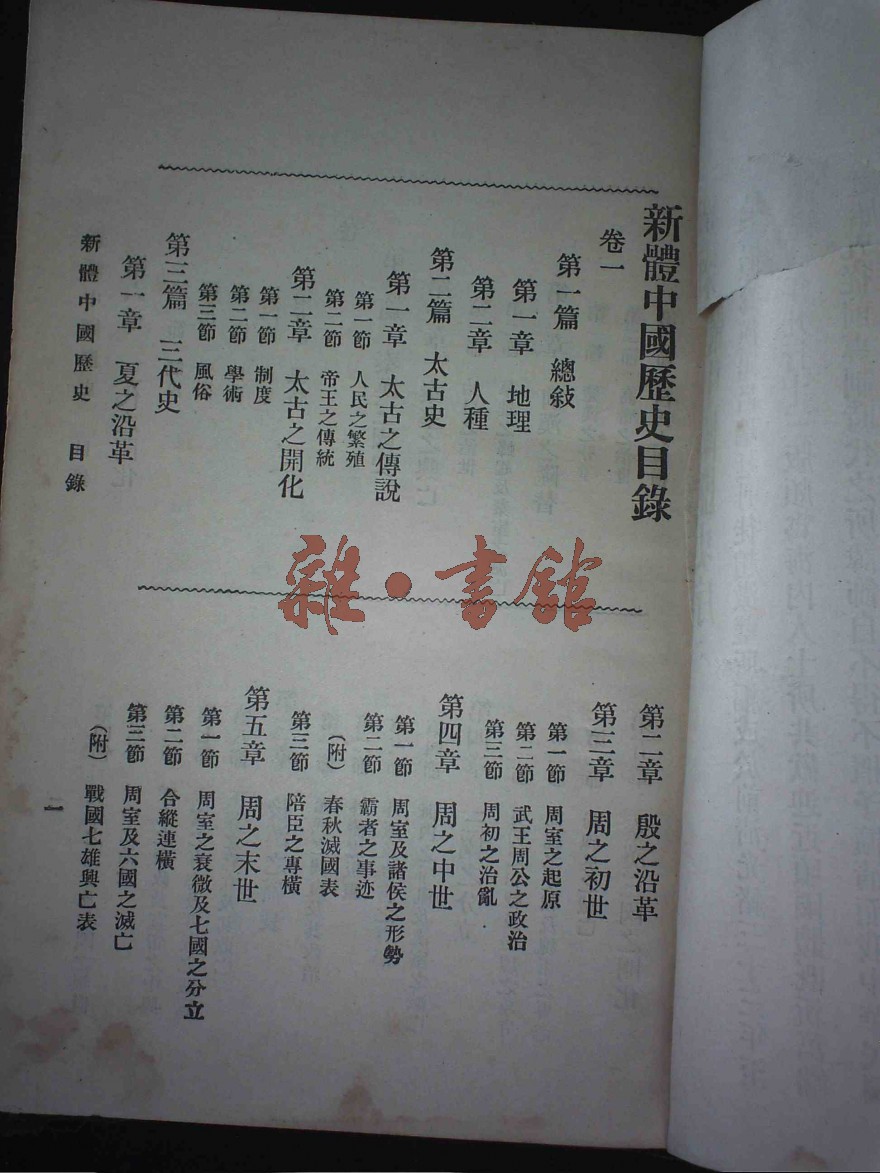 新體中國歷史目錄
卷一
第一篇 總敍
第一章 地理
第二章 人種
第二篇 太古史
第一章 太古之傳說
第一節 人民之繁殖
第二節 帝王之傳統
第二章 太古之開化
第一節 制度
第二節 學術
第三節 風俗
第三篇 三代史
第一章 夏之沿革
新體中國歷史 目錄
第二章 殷之沿革
第三章 周之初世
第一節 周室之起原
第二節 武王周公之政治
第三節 周初之治亂
第四章 周之中世
第一節 周室及諸侯之形勢
第二節 霸者之事迹
(附) 春秋滅國表
第三節 陪臣之專橫
第五章 周之末世
第一節 周室之衰微及七國之分立
第二節 合縱連橫
第三節 周室及六國之滅亡
(附) 戰國七雄興亡表
一
雜·書館